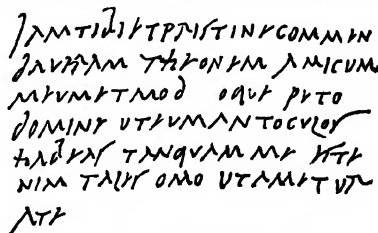 iamtibietpristinecommen
daveram theonem amicum
meumetmod oque peto
domine uteumantoculos
habeas tanquam me este
nim tales omo utametur
ate